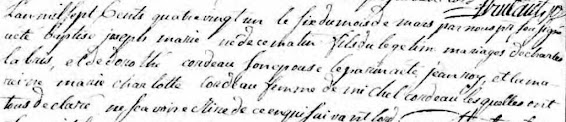 Lan mil sept Cents quatre vingt un le six du mois de mars par nous ptre soussigné
a ete baptise joseph marie né de ce matin fils du legetim mariages de charles
labris, et de dorothé cordeau son epouse le parain a ete jean roy, et la ma
raine marie charlotte cordeau femme de michel cordeau lesquelles ont
tous declaré ne scavoire ecrire de ce enquis suivant lord